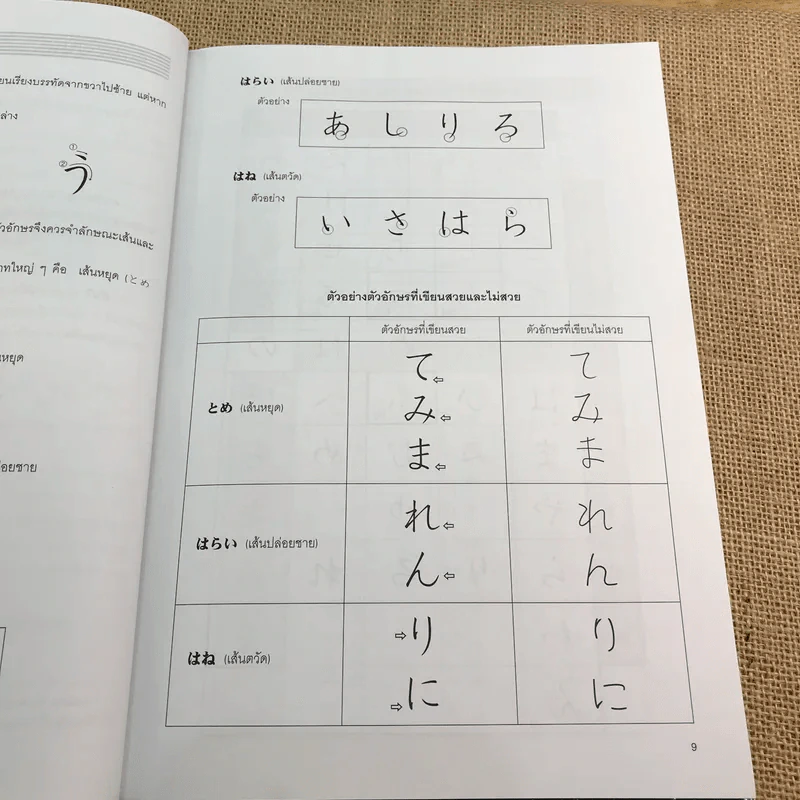 ยนเรียงบรรทัดจากขวาไปซ้าย แต่หาก
ล่าง
①
②
う
ัวอักษรจึงควรจำลักษณะเส้นและ
าทใหญ่ ๆ คือ เส้นหยุด (とめ
นหยุด
่อยชาย
はらい (เส้นปล่อยชาย)
ตัวอย่าง
あ し り ろ
はね (เส้นตวัด)
ตัวอย่าง
い さ は ら
ตัวอย่างตัวอักษรที่เขียนสวยและไม่สวย
ตัวอักษรที่เขียนสวย ตัวอักษรที่เขียนไม่สวย
とめ (เส้นหยุด)
て⇦ て
み⇦ み
ま⇦ ま
はらい (เส้นปล่อยชาย)
れ⇦ れ
ん⇦ ん
はね (เส้นตวัด)
⇨り り
⇨に に
9